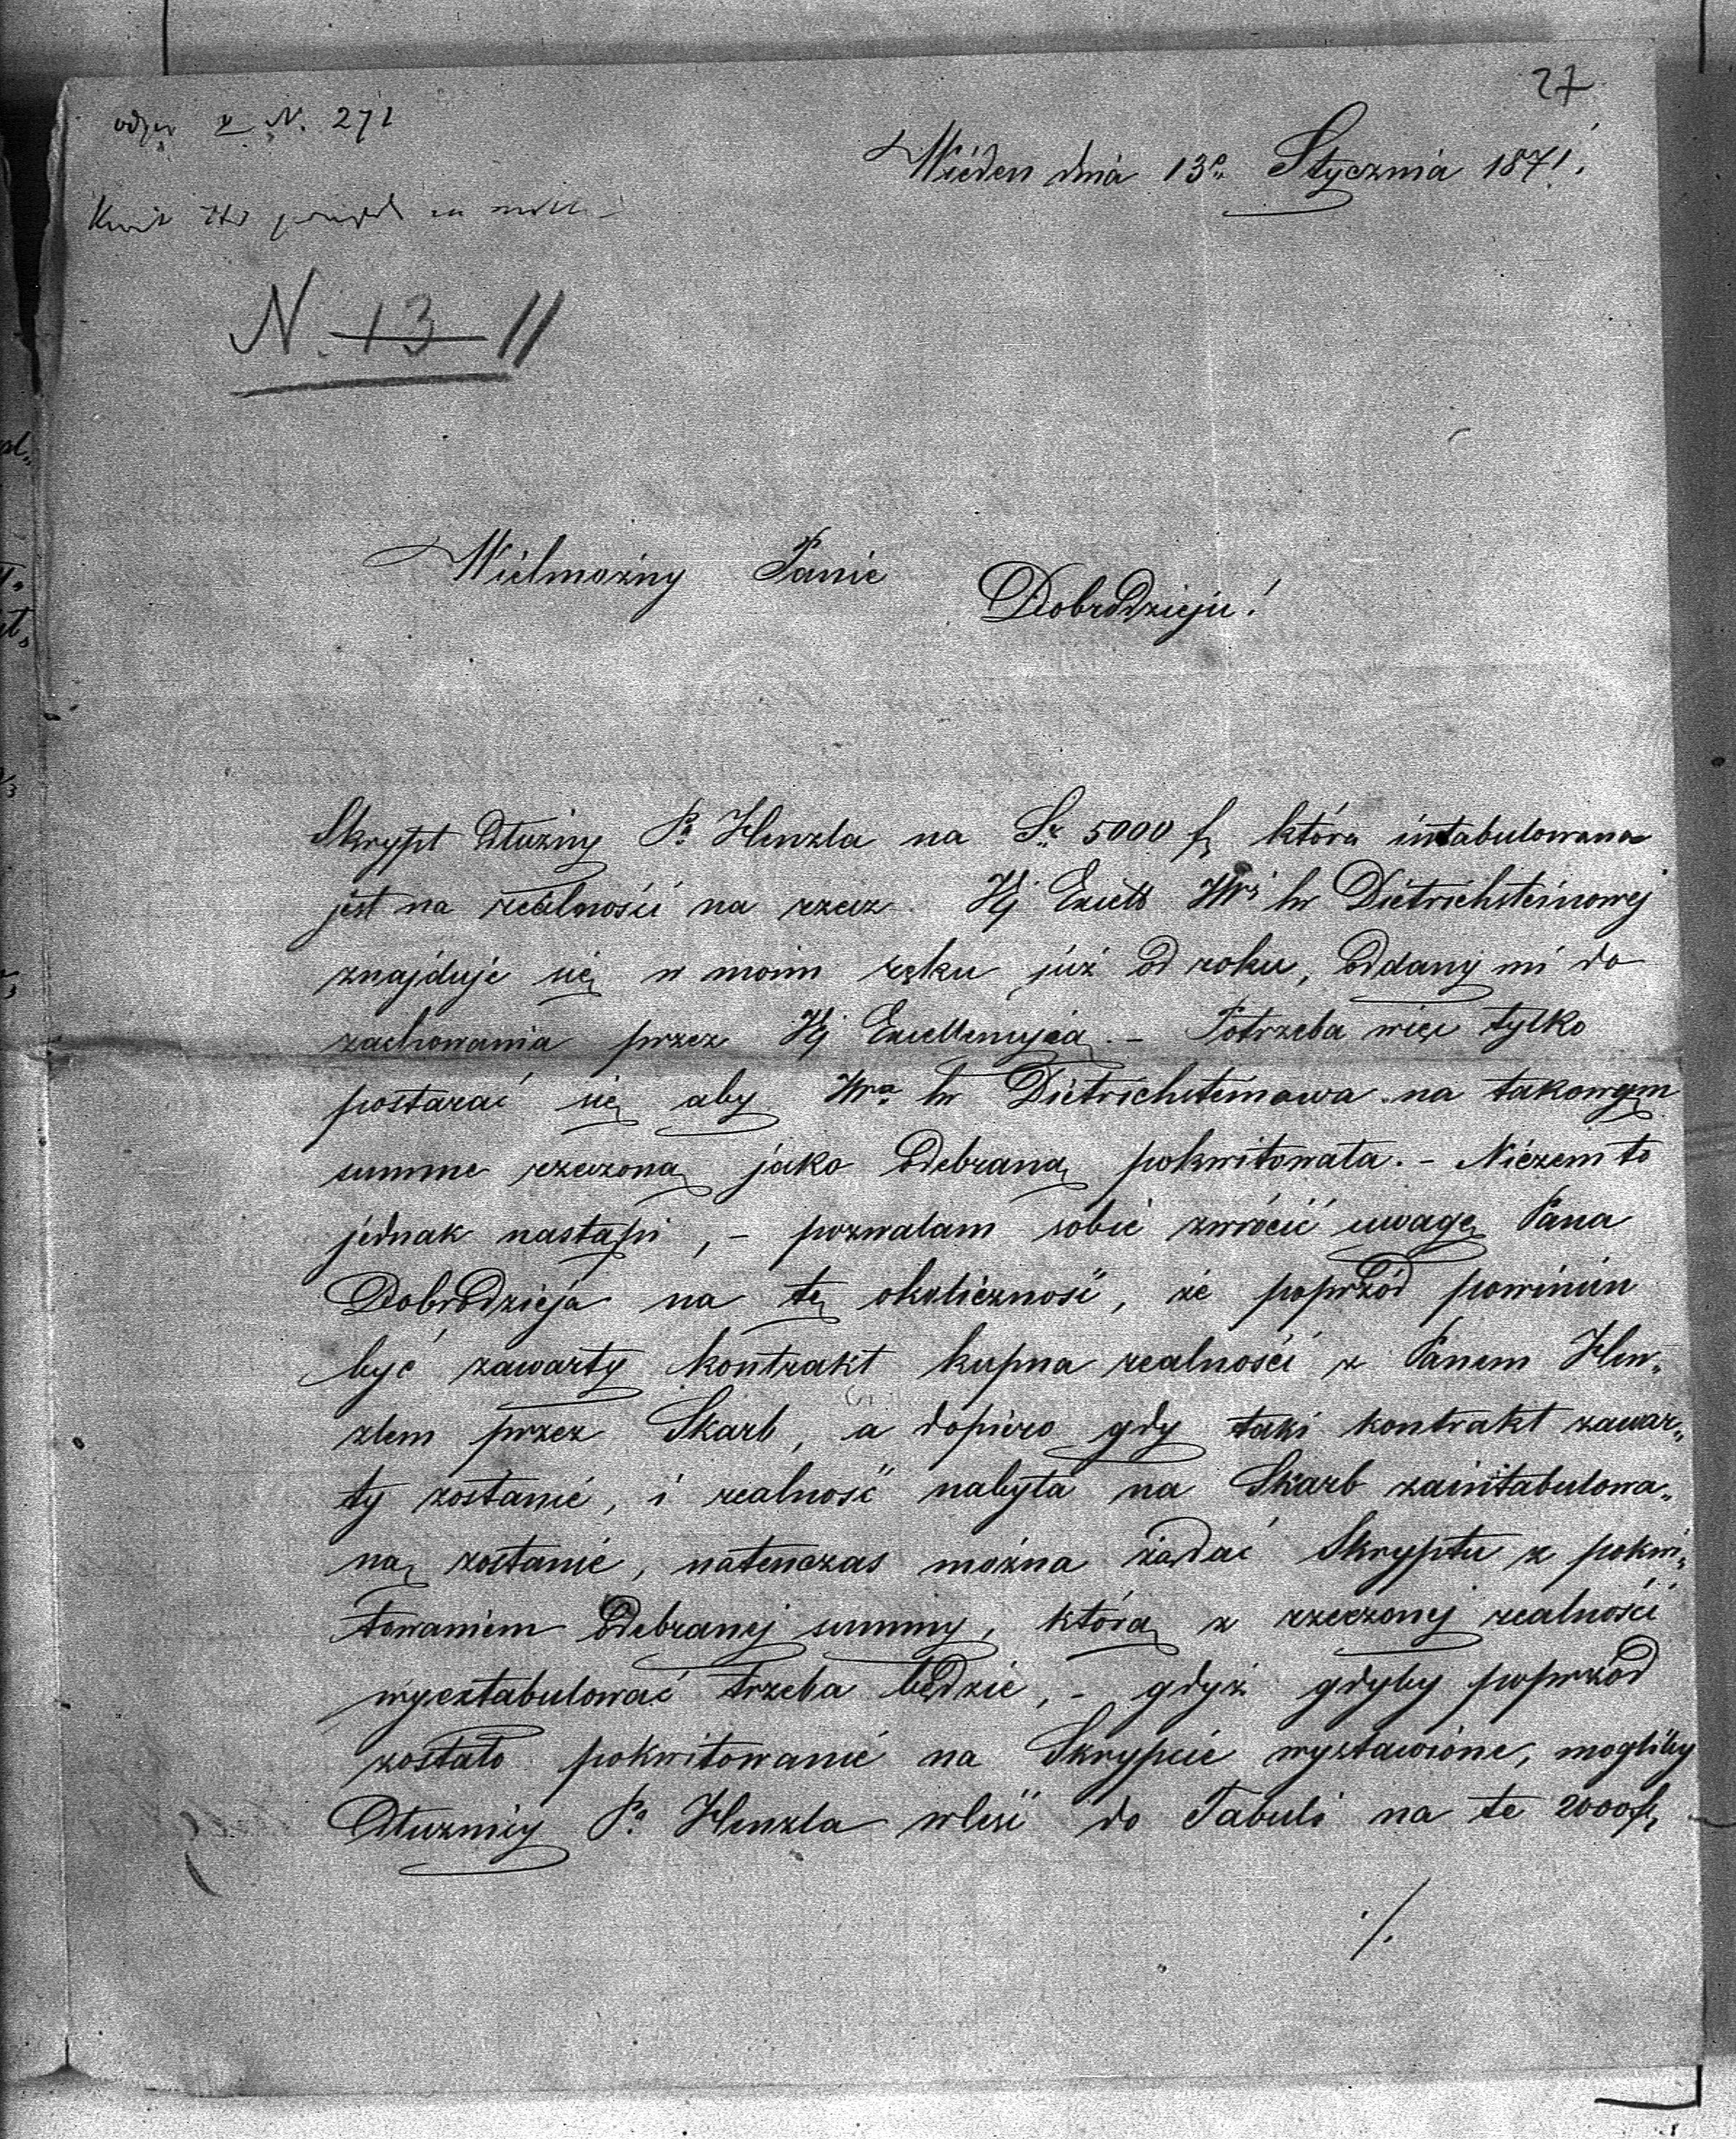 27
N. 271
Wiédeń dnia 13go Stycznia 1871.
Kwit
N. 13 11
Wielmożny Panie
Dobrodzieju!
Skrypt Dłużny Pa Henzla na Sę 5000 f, która intabulowana
jest na realności na rzecz Jej Excell Hrej hr Dietrichsteinowej
znajduje się w moim ręku już od roku, oddany mi do
zachowania przez Jej Excellencyją. – Potrzeba więc tylko
postarać się aby Hra hr Dietrichsteinowa na takowym
summe rzeczoną jako odebraną pokwitowała. – Niżém to
jednak nastąpi, – pozwalam sobie zwrócić uwagę Pana
Dobrodzieja na tę okoliczność, że poprzód powinien
być zawarty kontrakt kupna realności z Panem Hen„
zlem przez Skarb, a dopiero gdy taki kontrakt zawar„
ty zostanie, i realność nabyta na Skarb zaintabulowa„
ną zostanie, natenczas można żądać Skryptu z pokwi„
towaniem odebranej summy, którą z rzeczonej realności
wyextabulować trzeba będzie, – gdyż gdyby poprzód
zostało pokwitowanie na Skrypcie wystawione, mogliby
Dłużnicy Pa Henzla wleść do Tabuli na te 2000 f,
./.